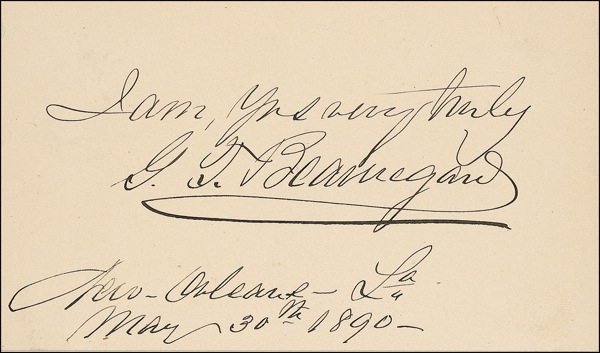 I am, Yrs very truly
G. T. Beauregard
New-Orleans- La
May 30th 1890-